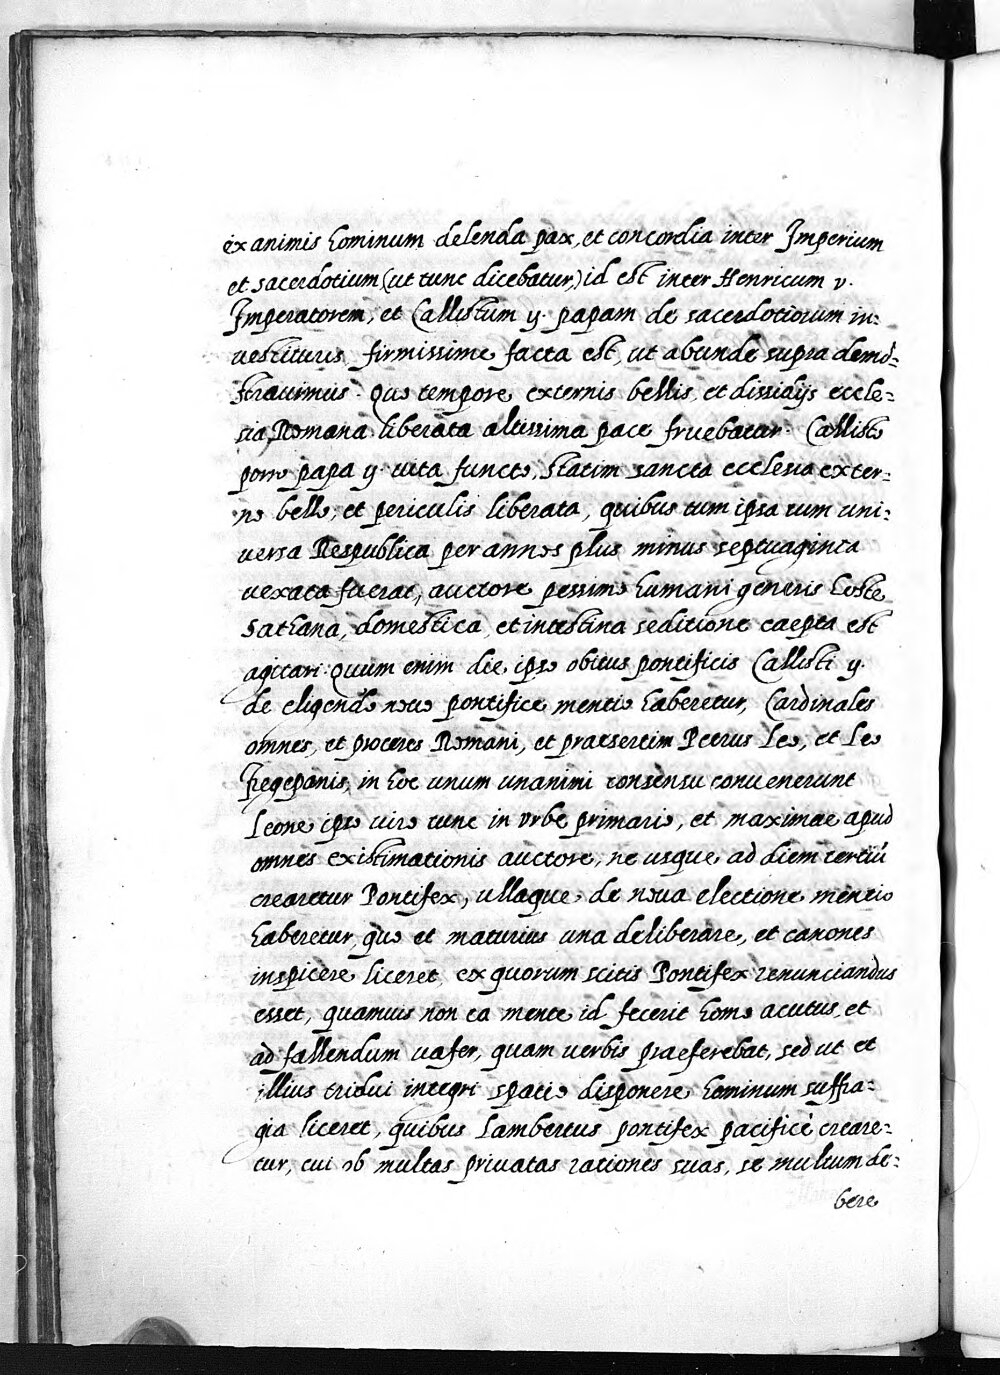 ex animis hominum delenda pax, et concordia inter Imperium
et sacerdotium (ut tunc dicebatur) id est inter Henricum v.
Imperatorem, et Callistum ij. papam de sacerdotiorum in=
vestituris firmissime facta est, ut abunde supra demõ=
stravimus. Quo tempore externis bellis, et dissidijs eccle=
sia Romana liberata altissima pace fruebatur. Callisto
porro papa ij. vita functo, statim sancta ecclesia exter=
no bello, et periculis liberata, quibus tum ipsa tum uni=
versa Respublica per annos plus minus septuaginta
vexata fuerat, auctore pessimo humani generis hoste
Sathana, domestica, et intestina seditione caepta est
agitari. Quum enim die ipso obitus pontificis Callisti ij.
de eligendo novo pontifice mentio haberetur, Cardinales
omnes, et proceres Romani, et praesertim Petrus Leo, et Leo
Fregepanis, in hoc unum unanimi consensu convenerunt
Leone ipso viro tunc in urbe primario, et maximae apud
omnes existimationis auctore, ne usque ad diem tertiũ
crearetur Pontifex, ullaque de nova electione mentio
haberetur, quo et maturius una deliberare, et canones
inspicere liceret, ex quorum scitis Pontifex renunciandus
esset, quamvis non ea mente id fecerit homo acutus, et
ad fallendum vafer, quam verbis praeferebat, sed ut et
illius tridui integri spatio disponere hominum suffra=
gia liceret, quibus Lambertus pontifex pacificè creare=
tur, cui ob multas privatas rationes suas, se multum de=
bere